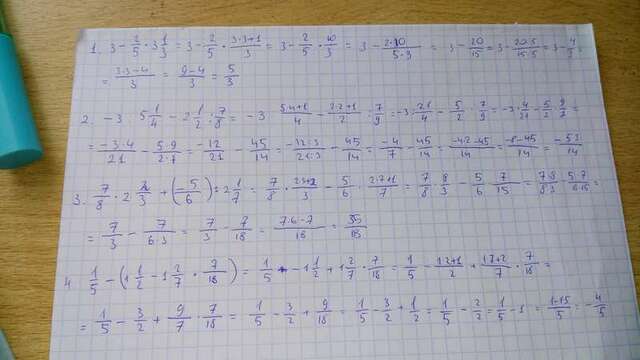 1. 3 - 2/5 · 3 1/3 = 3 - 2/5 · (3·3+1)/3 = 3 - 2/5 · 10/3 = 3 - (2·10)/(5·3) = 3 - 20/15 = 3 - (20:5)/(15:5) = 3 - 4/3 =
= (3·3-4)/3 = (9-4)/3 = 5/3
2. -3 : 5 1/4 - 2 1/2 : 7/9 = -3 : (5·4+1)/4 - (2·2+1)/2 : 7/9 = -3 : 21/4 - 5/2 : 7/9 = -3 · 4/21 - 5/2 · 9/7 =
= (-3·4)/21 - (5·9)/(2·7) = -12/21 - 45/14 = (-12:3)/(21:3) - 45/14 = -4/7 - 45/14 = (-4·2-45)/14 = (-8-45)/14 = -53/14
3. 7/8 · 2 2/3 + (-5/6) : 2 1/7 = 7/8 · (2·3+2)/3 - 5/6 : (2·7+1)/7 = 7/8 · 8/3 - 5/6 · 7/15 = (7·8)/(8·3) - (5·7)/(6·15) =
= 7/3 - 7/(6·3) = 7/3 - 7/18 = (7·6-7)/18 = 35/18
4. 1/5 - (1 1/2 - 1 2/7 · 7/18) = 1/5 - 1 1/2 + 1 2/7 · 7/18 = 1/5 - (1·2+1)/2 + (1·7+2)/7 · 7/18 =
= 1/5 - 3/2 + 9/7 · 7/18 = 1/5 - 3/2 + 9/18 = 1/5 - 3/2 + 1/2 = 1/5 - 2/2 = 1/5 - 1 = (1-1·5)/5 = -4/5